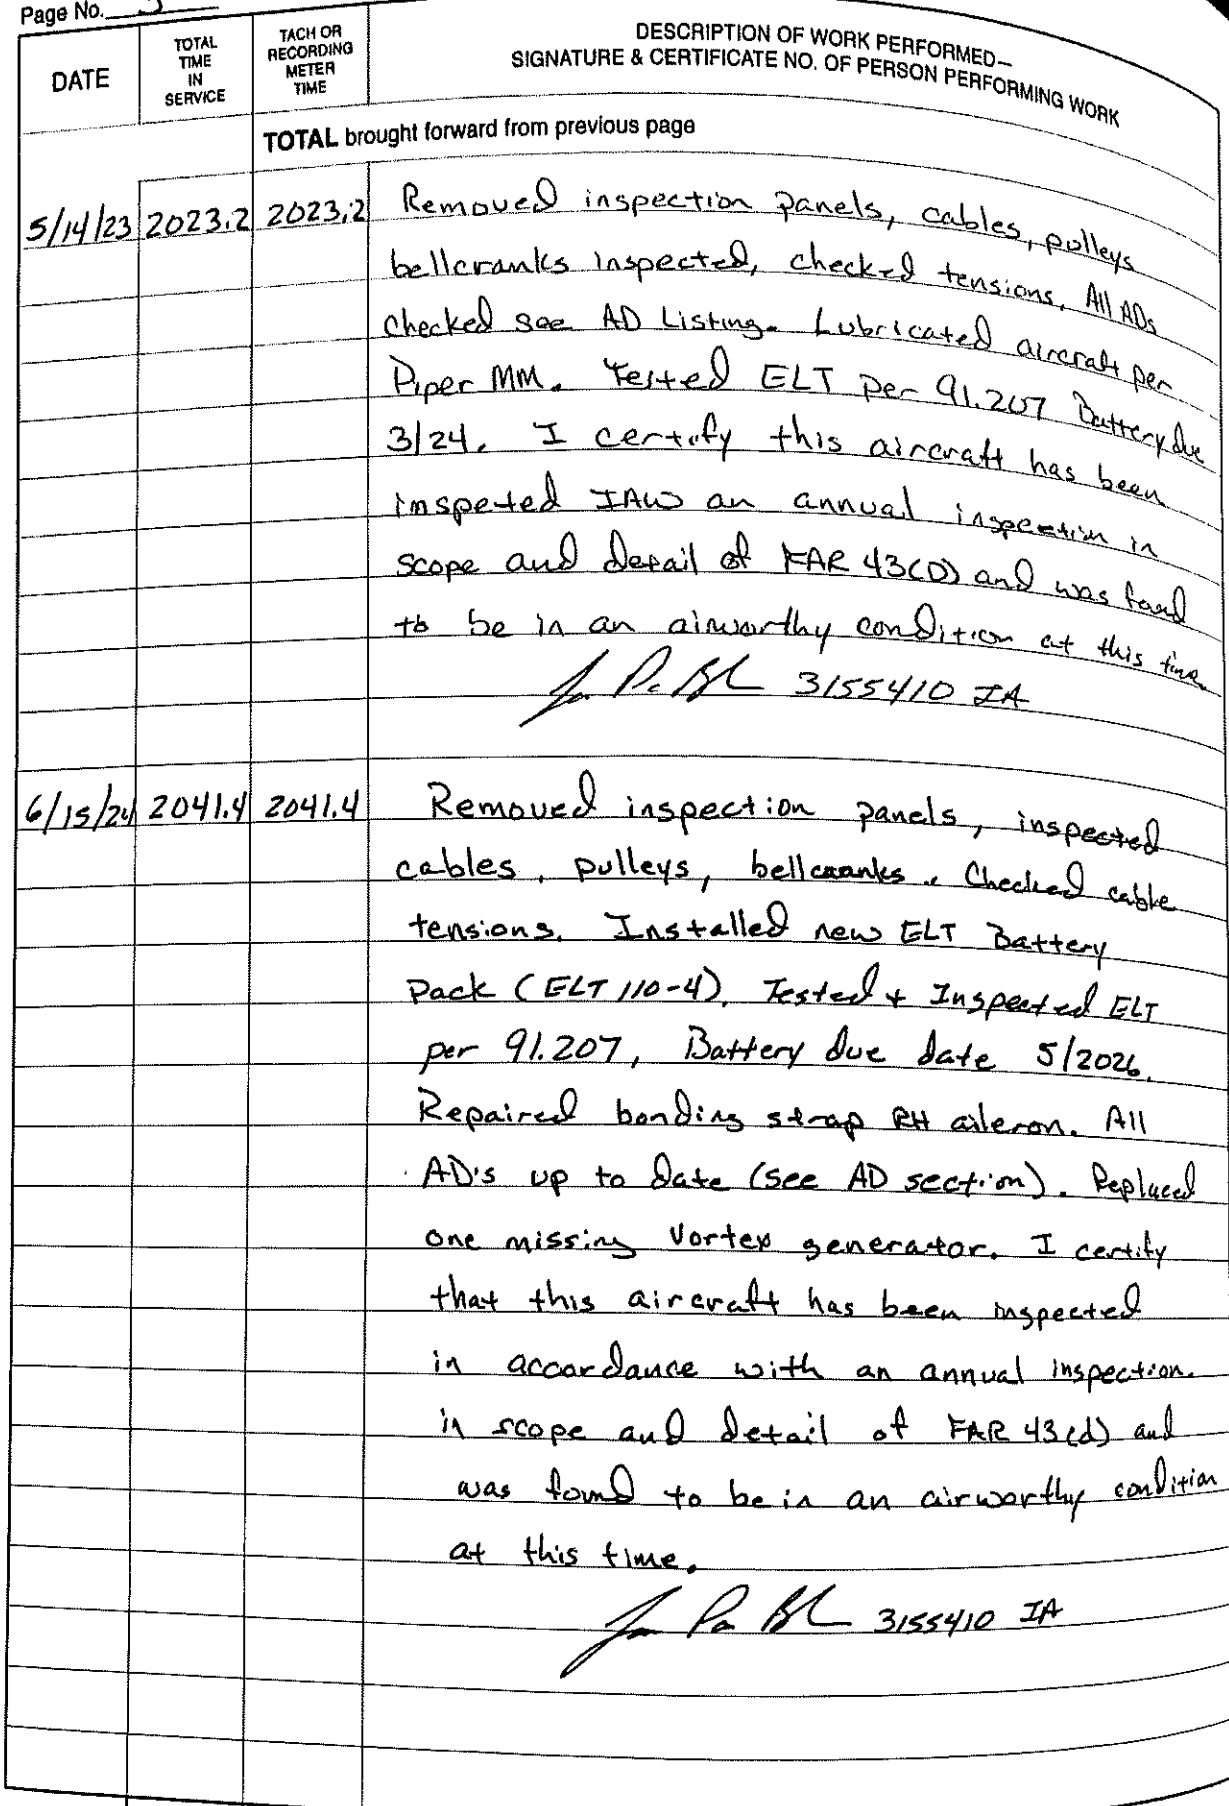 Page No.
DATE
TOTAL
TIME
IN
SERVICE
TACH OR
RECORDING
METER
TIME
DESCRIPTION OF WORK PERFORMED—
SIGNATURE & CERTIFICATE NO. OF PERSON PERFORMING WORK
TOTAL brought forward from previous page
5/14/23 2023.2 2023.2 Removed inspection panels, cables, pulleys
bellcranks inspected, checked tensions. All ADs
checked see AD Listing. Lubricated aircraft per
Piper MM. Tested ELT per 91.207 Battery due
3/24. I certify this aircraft has been
inspeted IAW an annual inspection in
scope and detail of FAR 43(D) and was foud
to be in an airworthy condition at this time.
3155410 IA
6/15/24 2041.4 2041.4 Removed inspection panels, inspected
cables, pulleys, bellcranks. Checked cable
tensions. Installed new ELT Battery
Pack (ELT 110-4). Tested + Inspected ELT
per 91.207, Battery due date 5/2026.
Repaired bonding strap RH aileron. All
AD's up to date (see AD section). Replaced
one missing Vortex generator. I certify
that this aircraft has been inspected
in accordance with an annual inspection.
in scope and detail of FAR 43(d) and
was found to be in an airworthy condition
at this time.
3155410 IA